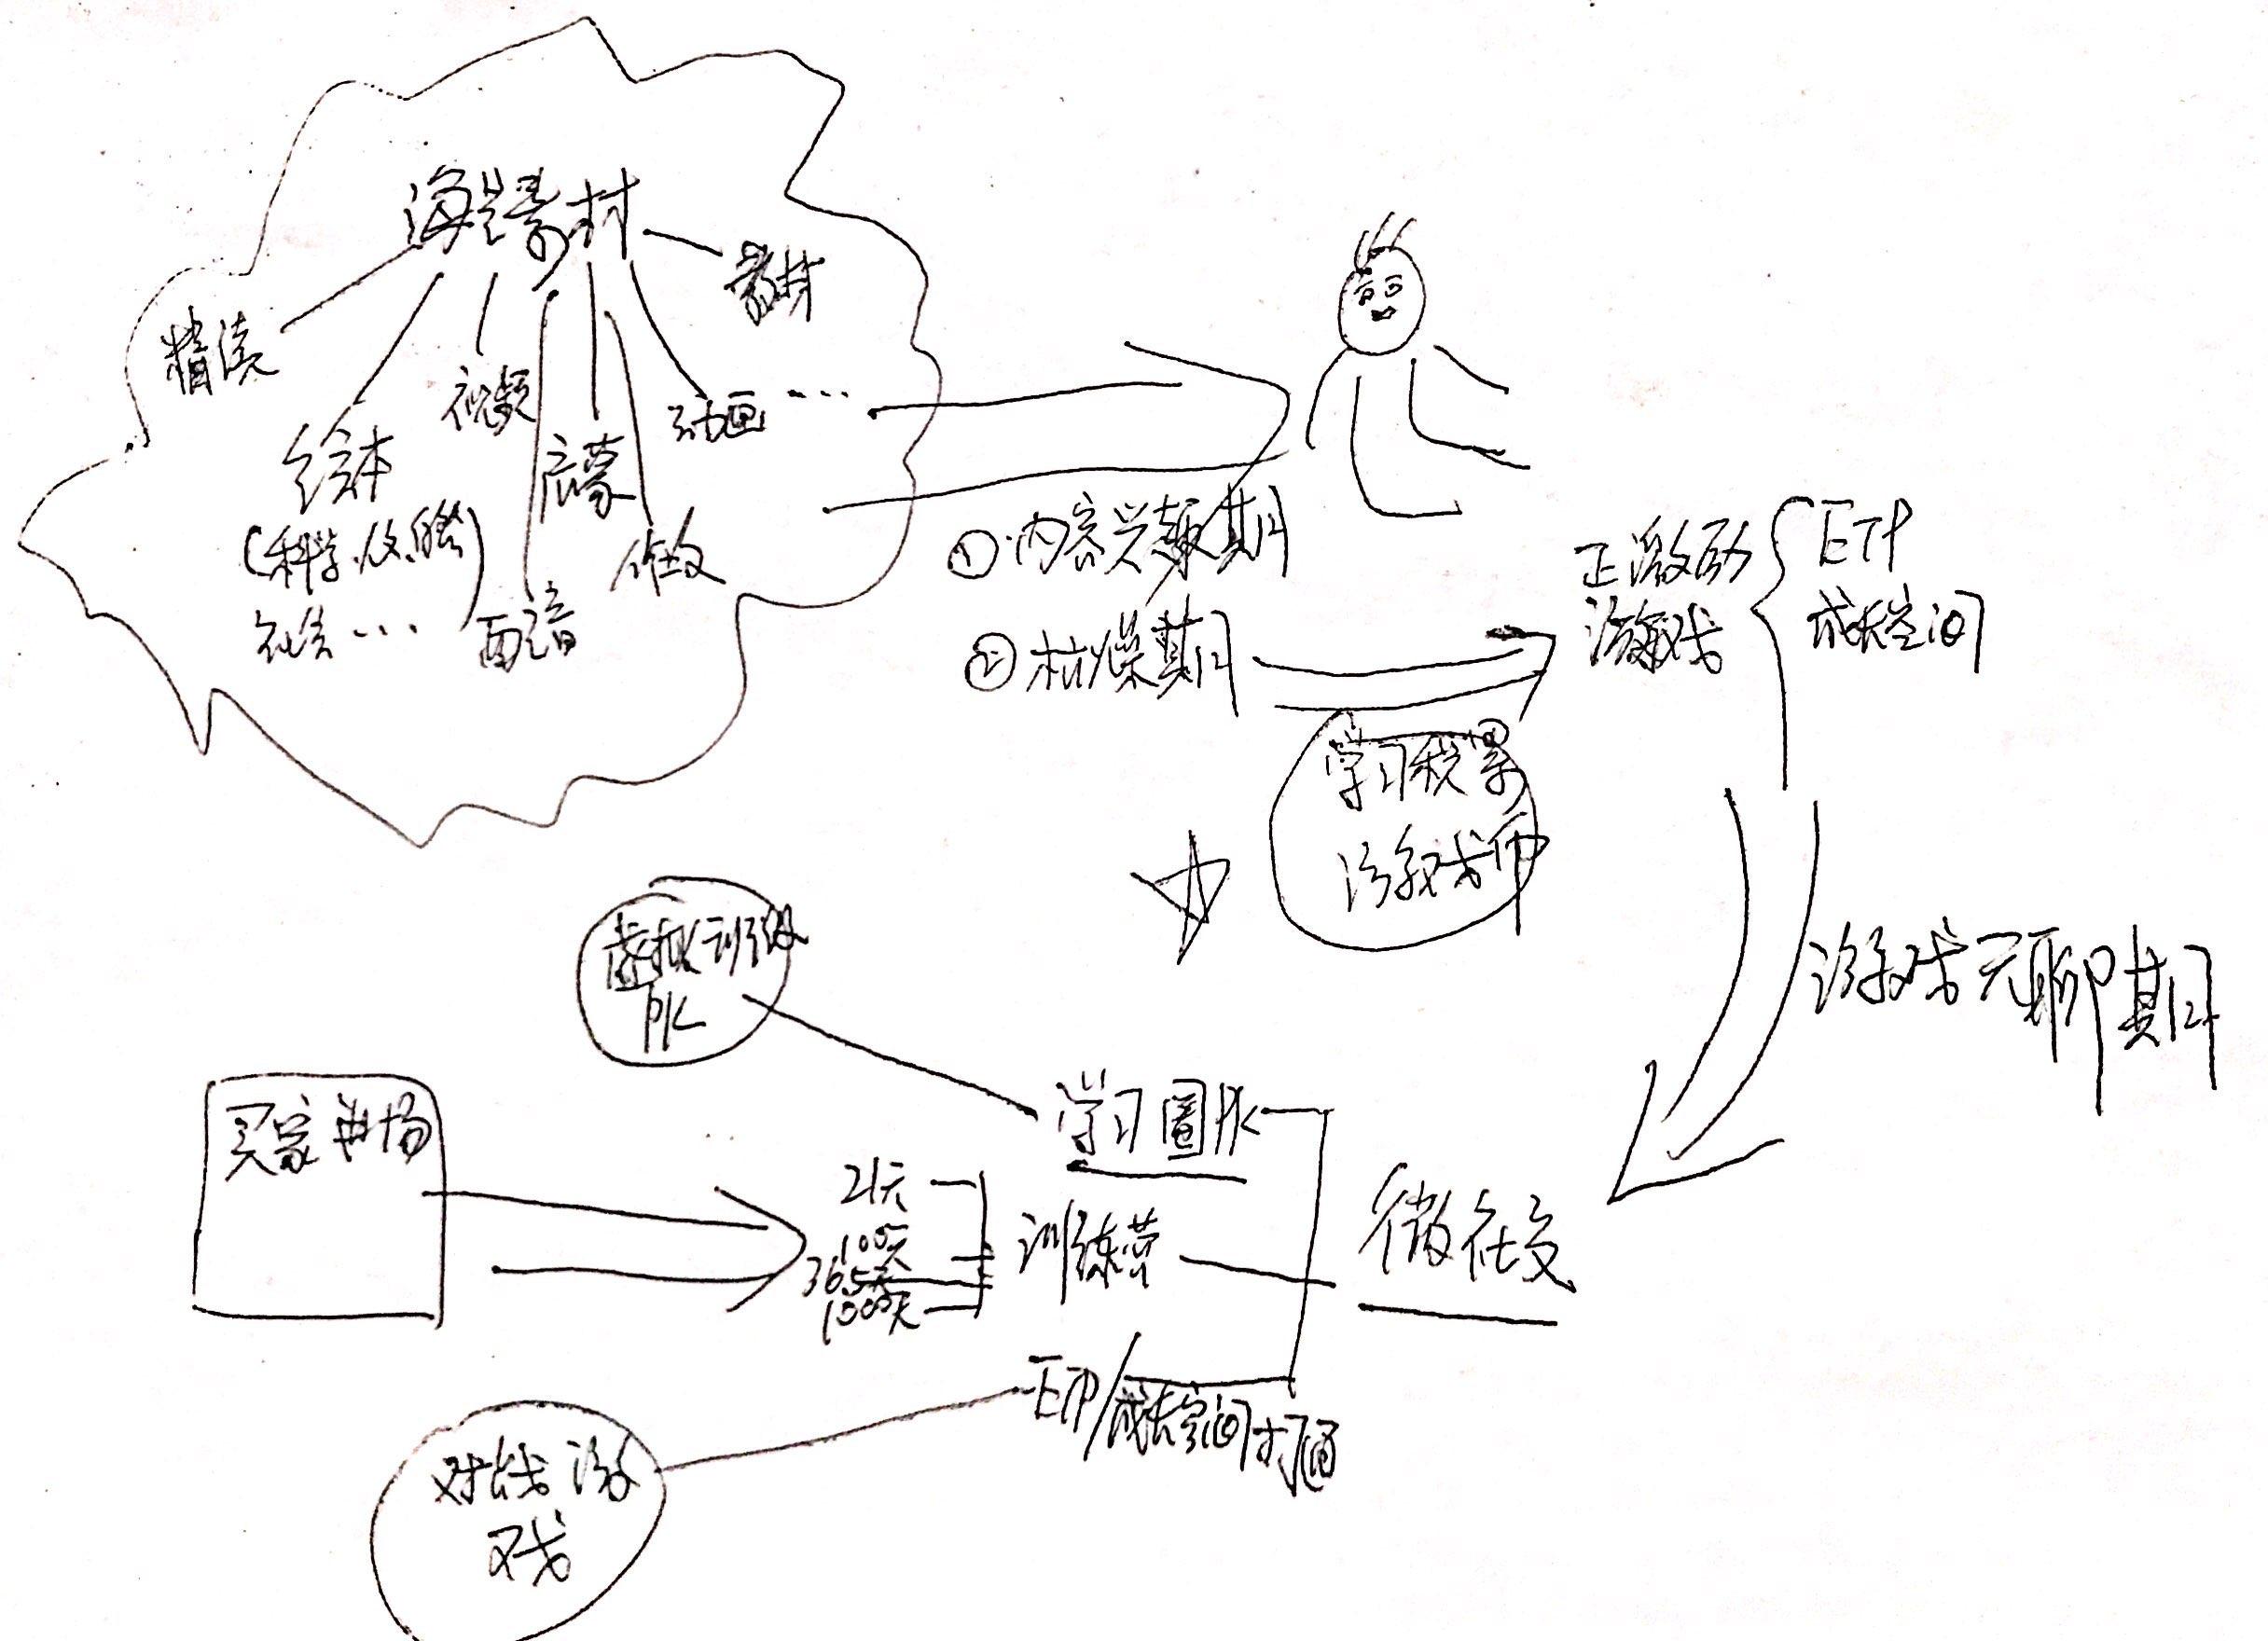 海量素材
教材
精读
视频
动画...
绘本
启蒙
(科学.人文.自然)
社会...
配音
作文
①内容兴趣期
②枯燥期
正激励
游戏
ETP
成长空间
学习积累
游戏币
游戏无聊期
虚拟训练
PK
买家市场
学习團队
21天
100天
365天
1000天
训练营
微社交
ETP/成长空间打通
对战游
戏